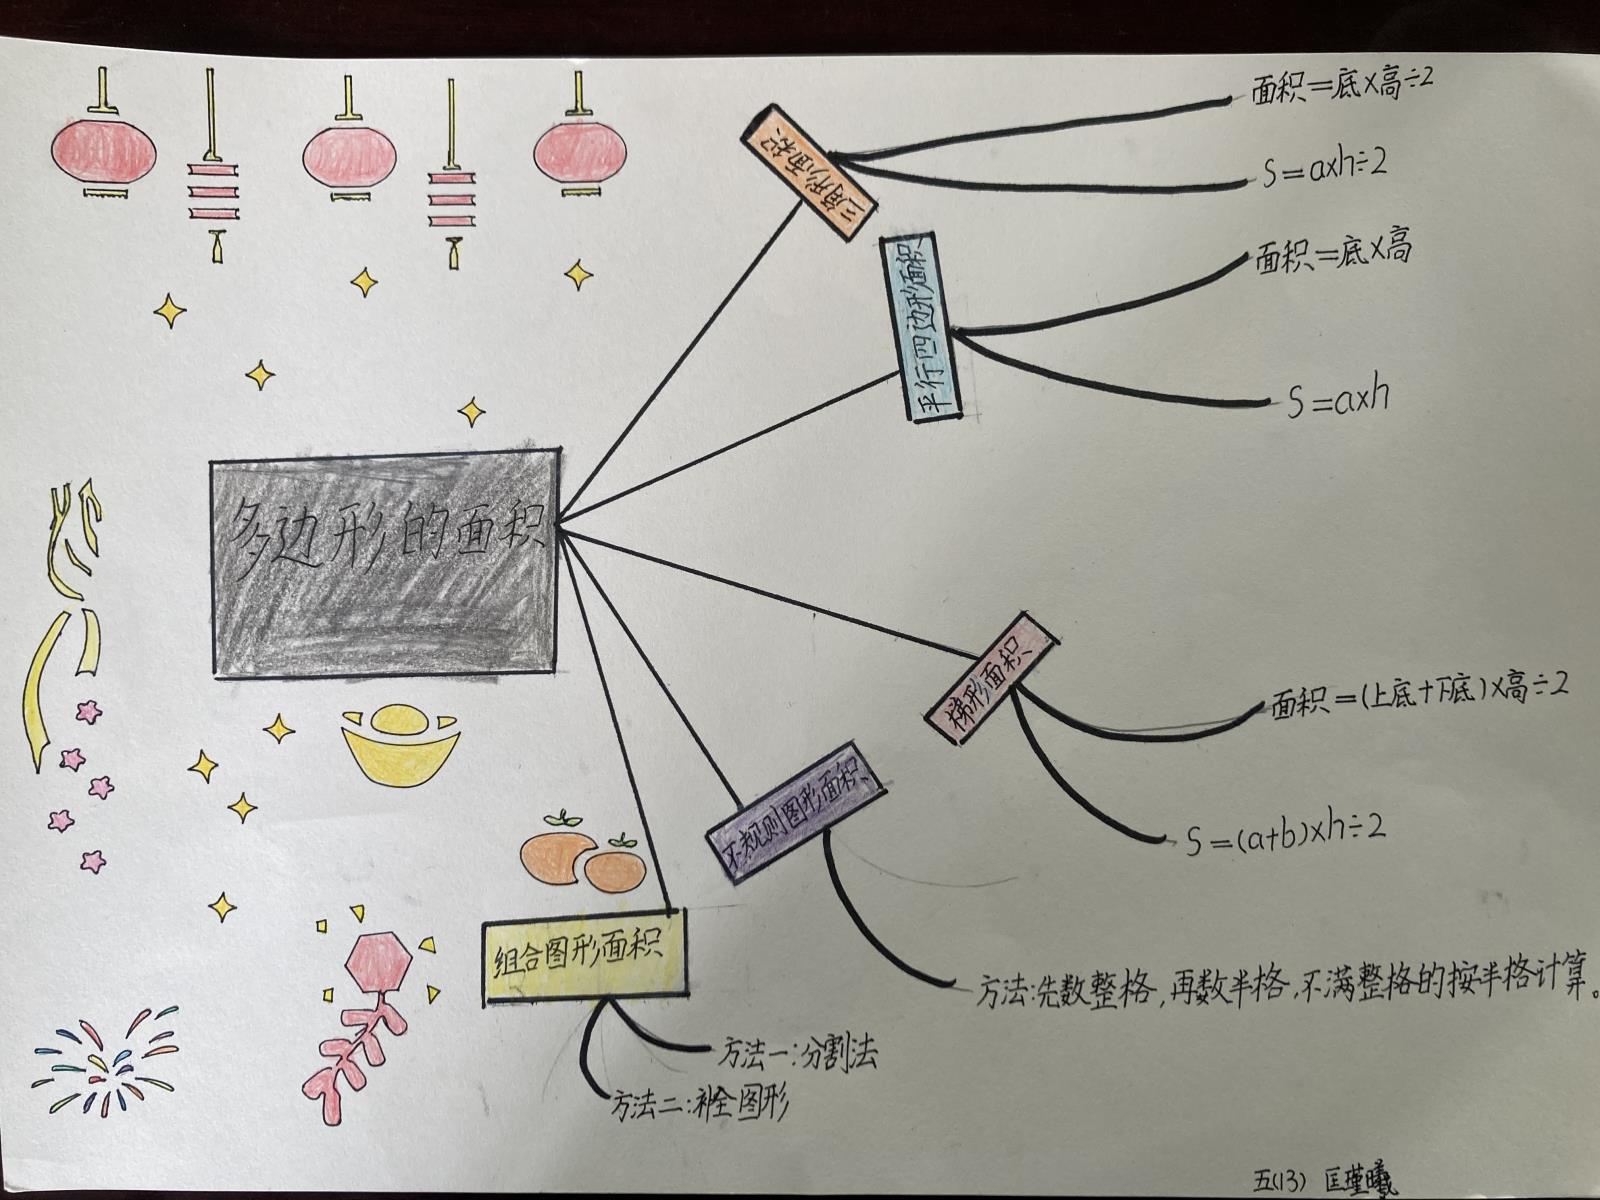 面积=底×高÷2
三角形面积
S=a×h÷2
平行四边形面积
面积=底×高
S=a×h
多边形的面积
梯形面积
面积=(上底+下底)×高÷2
S=(a+b)×h÷2
不规则图形面积
方法:先数整格,再数半格,不满整格的按半格计算。
组合图形面积
方法一:分割法
方法二:补全图形
五(13) 匡瑾曦